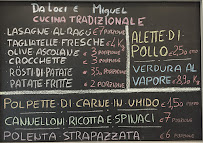 DA LOCI E MIGUEL
CUCINA TRADIZIONALE
LASAGNE AL RAGÙ €7 PORZIONE
TAGLIATELLE FRESCHE
OLIVE ASCOLANE €3 PORZIONE
CROCCHETTE €3 PORZIONE
RÖSTI DI PATATE €3 PORZIONE
PATATE FRITTE €2 PORZIONE
ALETTE DI
POLLO
VERDURA AL
VAPORE
POLPETTE DI CARNE IN UMIDO €1,50
CANNELLONI RICOTTA E SPINACI €7 PORZIONE
POLENTA STRAPAZZATA €6 PORZIONE